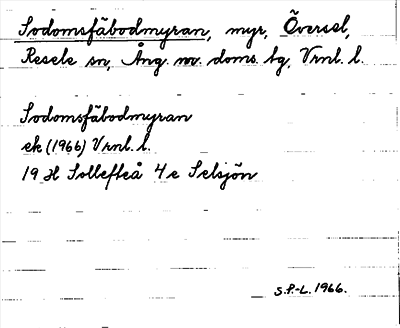 Sodomsfäbodmyran, myr, Översel,
Resele sn, Ång. nv. doms. lg, Vrnl. l.
Sodomsfäbodmyran
ek (1966) Vrnl. l.
19 H Sollefteå 4 e Selsjön
S.P.-L. 1966.